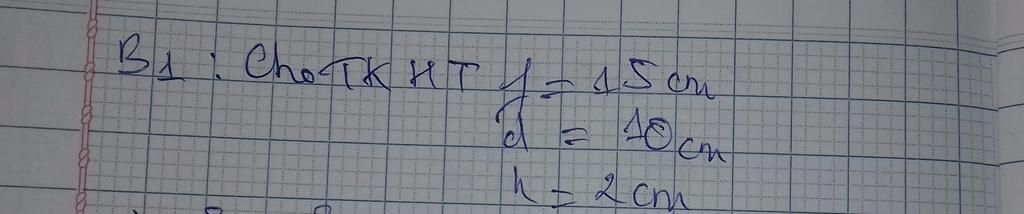 B1 : Cho TKHT f = 15 cm
d = 10 cm
h = 2 cm